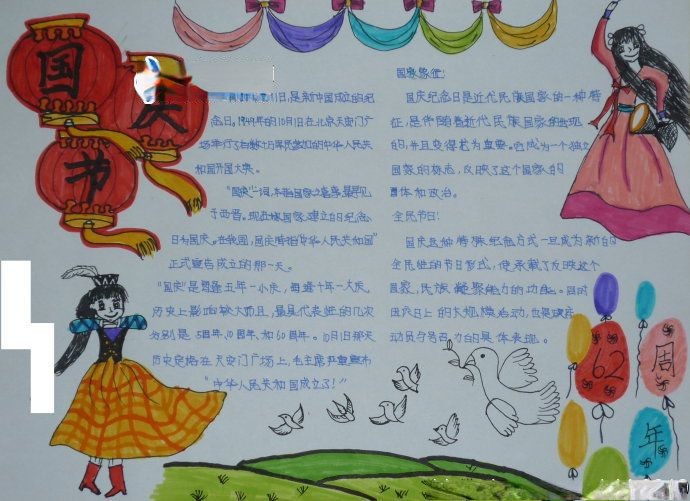 国
庆
节
1日,是新中国成立的纪
念日。1949年的10月1日在北京天安门广
场举行了有数十万军民参加的中华人民共
和国开国大典。
"国庆"一词,本指国家之喜事,最早见
于西晋。现在被国家建立的纪念
日称国庆。在我国,国庆特指"中华人民共和国"
正式宣告成立的那一天。
"国庆"是每逢五年一小庆,每逢十年一大庆。
历史上影响较大而且最具代表性的几次
分别是5周年、10周年、和60周年。10月1日那天
历史定格在天安门广场上,毛主席严重宣布
"中华人民共和国成立了!"
国家象征:
国庆纪念日是近代民族国家的一种特
征,是伴随着近代民族国家的出现
的,并且变得尤为重要。它成为一个独立
国家的标志,反映了这个国家的
国体和政治。
全民节日:
国庆这种特殊纪念方式一旦成为新的
全民性的节日形式,便承载了反映这个
国家,民族凝聚能力的功能。同时
国庆日上的大规模活动,也是政府
动员与号召力的具体表现。
62
周
年